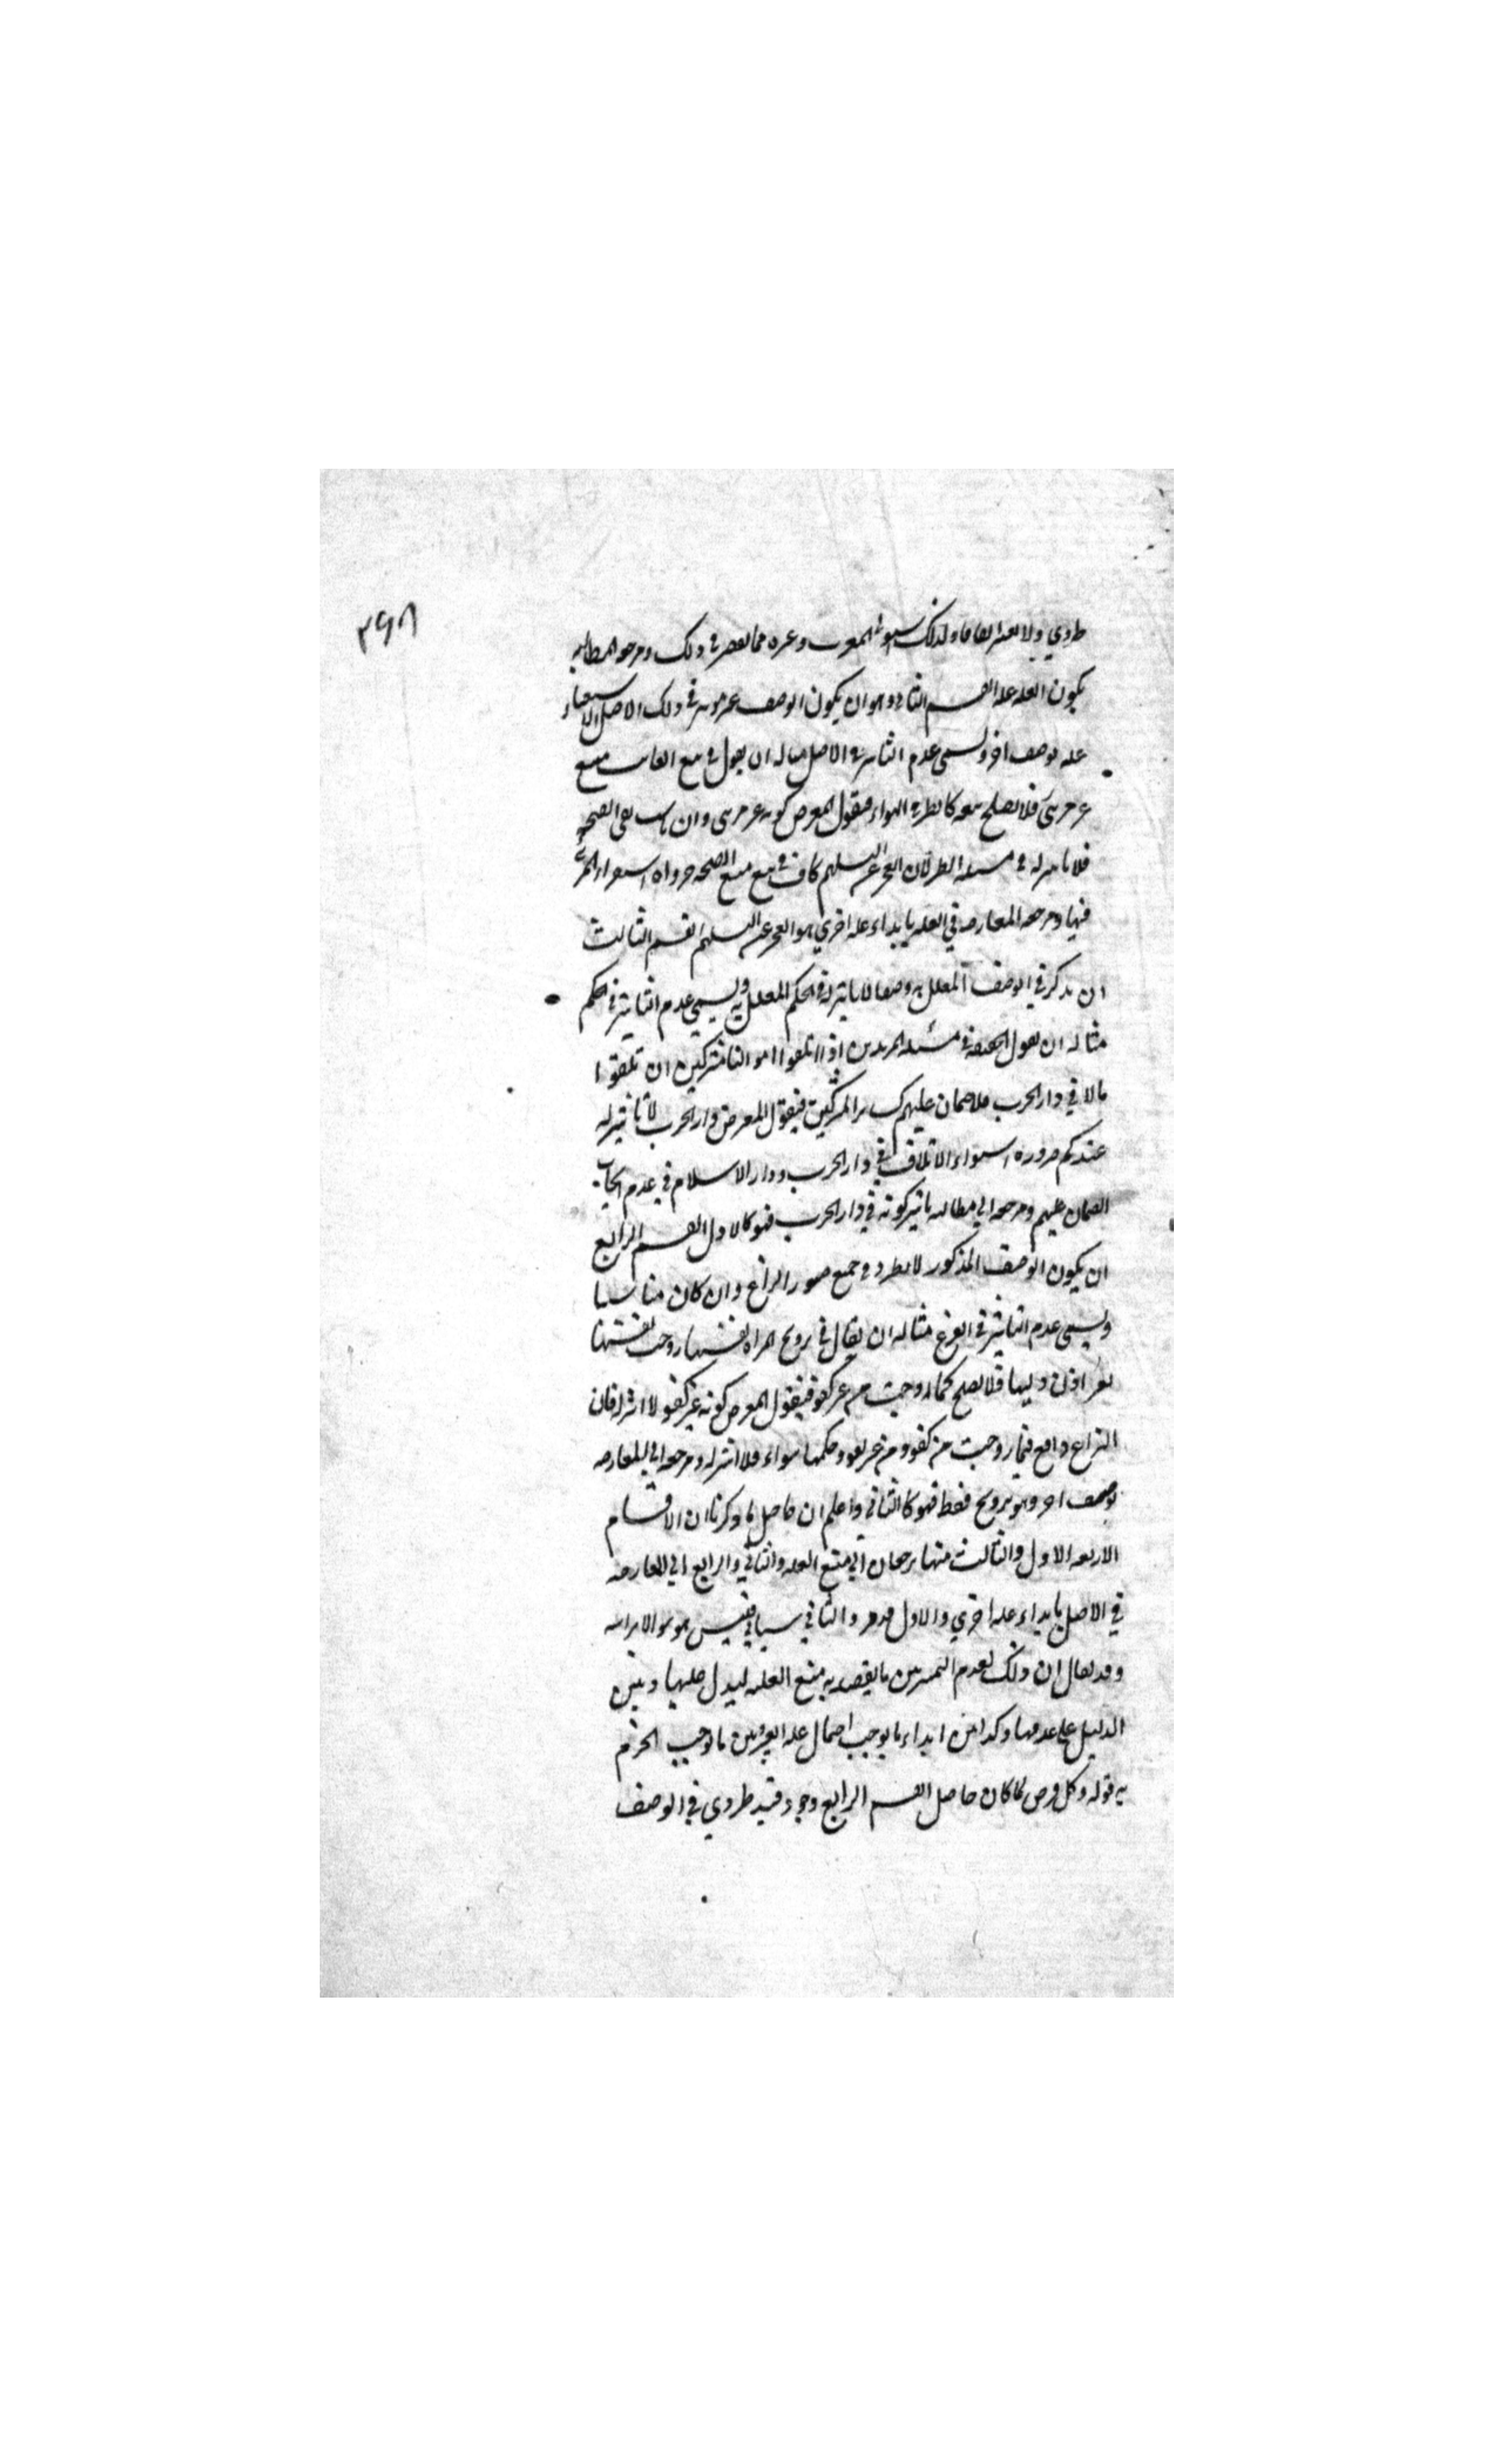 ٣٩٨
طردي ولا يعتبر اتفاقا ولذلك سوى المغرب وغيره مما يقصر في ذلك ومرجعه المطالبة
بكون العلة علة القسم الثاني وهو ان يكون الوصف غير موثر في ذلك الاصل للاستغناء
عنه بوصف اخر ويسمى عدم التاثير في الاصل مثاله ان يقول في بيع الغائب مبيع
غير مرئي فلا يصلح بيعه كالطير في الهواء فيقول المعترض كونه غير مرئي وان ناسب نفي الصحة
فلا تاثير له في مسئلة الطير لان العجز عن التسليم كاف في منع الصحة ضرورة استواء المرئي
فيها ومرجعه المعارضة في العلة بابداء علة اخرى هو العجز عن التسليم القسم الثالث
ان يذكر في الوصف المعلل به وصفا لا تاثير له في الحكم المعلل به ويسمى عدم التاثير في الحكم
مثاله ان يقول الحنفية في مسئلة المرتدين اذا اتلفوا اموالنا مشركين ان تلفوا
مالا في دار الحرب فلا ضمان عليهم كسائر المشركين فيقول المعترض دار الحرب لا تاثير له
عندكم ضرورة استواء الاتلاف في دار الحرب ودار الاسلام في عدم ايجاب
الضمان عليهم ومرجعه الي مطالبة تاثير كونه في دار الحرب فهو كالاول القسم الرابع
ان يكون الوصف المذكور لا يطرد في جميع صور النزاع وان كان مناسبا
ويسمى عدم التاثير في الفرع مثاله ان يقال في تزويج المراة نفسها زوجت نفسها
بغير اذن وليها فلا يصح كما لو زوجت من غير كفو فيقول المعترض كونه غير كفو لا اثر له فان
النزاع واقع فيما زوجت من كفو ومن غير كفو وحكمهما سواء فلا اثر له ومرجعه الي المعارضة
بوصف اخر وهو تزويج فقط فهو كالثاني واعلم ان حاصل ما ذكرنا ان الاقسام
الاربعة الاول والثالث منها يرجعان الي منع العلة والثاني والرابع الي المعارضة
في الاصل بابداء علة اخرى والاول قد مر والثاني سياتي فليس هو سوالا براسه
وقد يقال ان ذلك لعدم التمييز بين ما يقصد به منع العلة ليدل عليها وبين
الدليل على عدمها وكذا بين ابداء ما يوجب احتمال علة الغير وبين ما يوجب الجزم
به قوله وكل فرض لما كان حاصل القسم الرابع وجود قيد طردي في الوصف